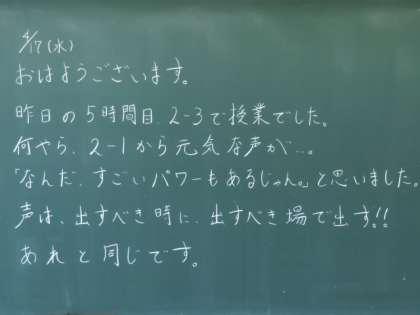 4/17(水)
おはようございます。
昨日の5時間目、2-3で授業でした。
何やら、2-1から元気な声が…。
「なんだ、すごいパワーもあるじゃん。」と思いました。
声は、出すべき時に、出すべき場で出す!!
あれと同じです。